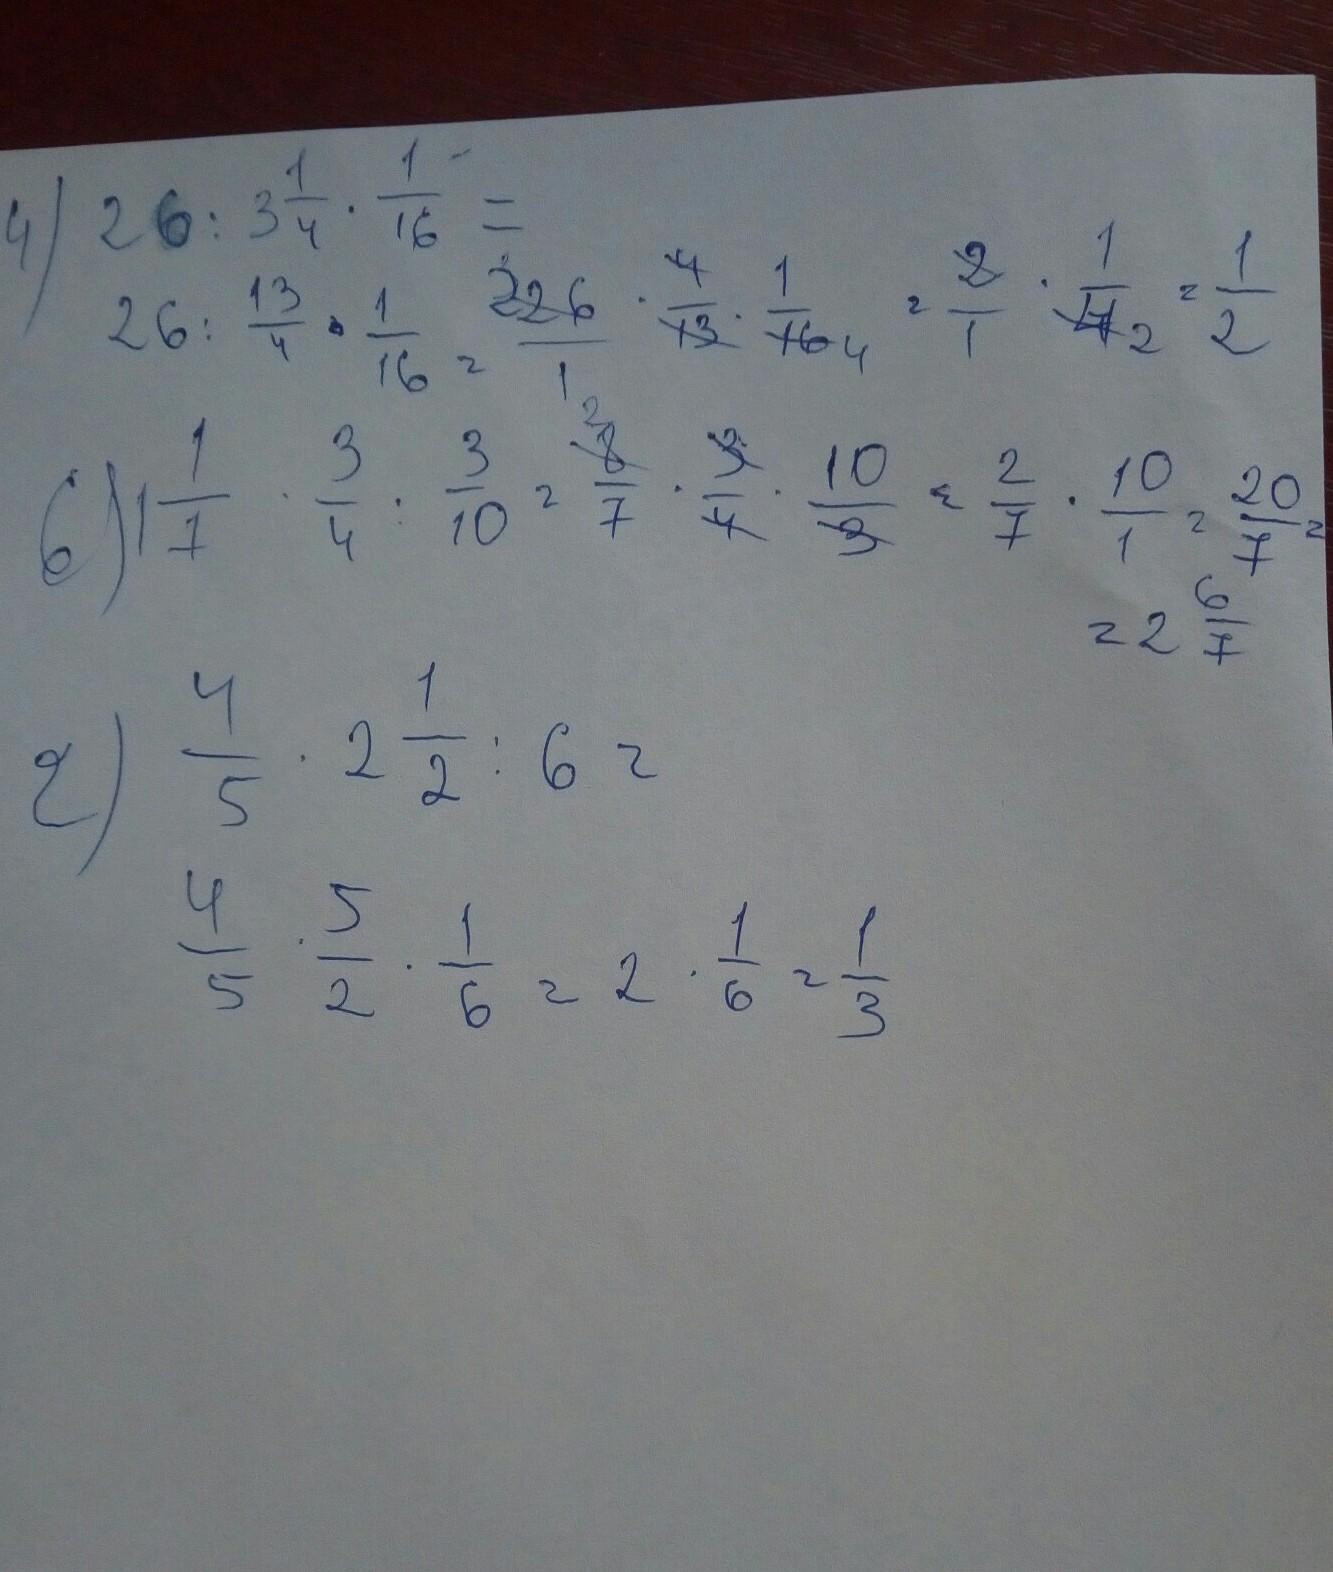 4) 26 : 3 1/4 · 1/16 =
26 : 13/4 · 1/16 = 26/1 · 4/13 · 1/16 4 = 2/1 · 1/4 2 = 1/2
б) 1 1/7 · 3/4 : 3/10 = 2 8/7 · 3/4 · 10/3 = 2/7 · 10/1 = 20/7 =
= 2 6/7
2) 4/5 · 2 1/2 : 6 =
4/5 · 5/2 · 1/6 = 2 · 1/6 = 1/3